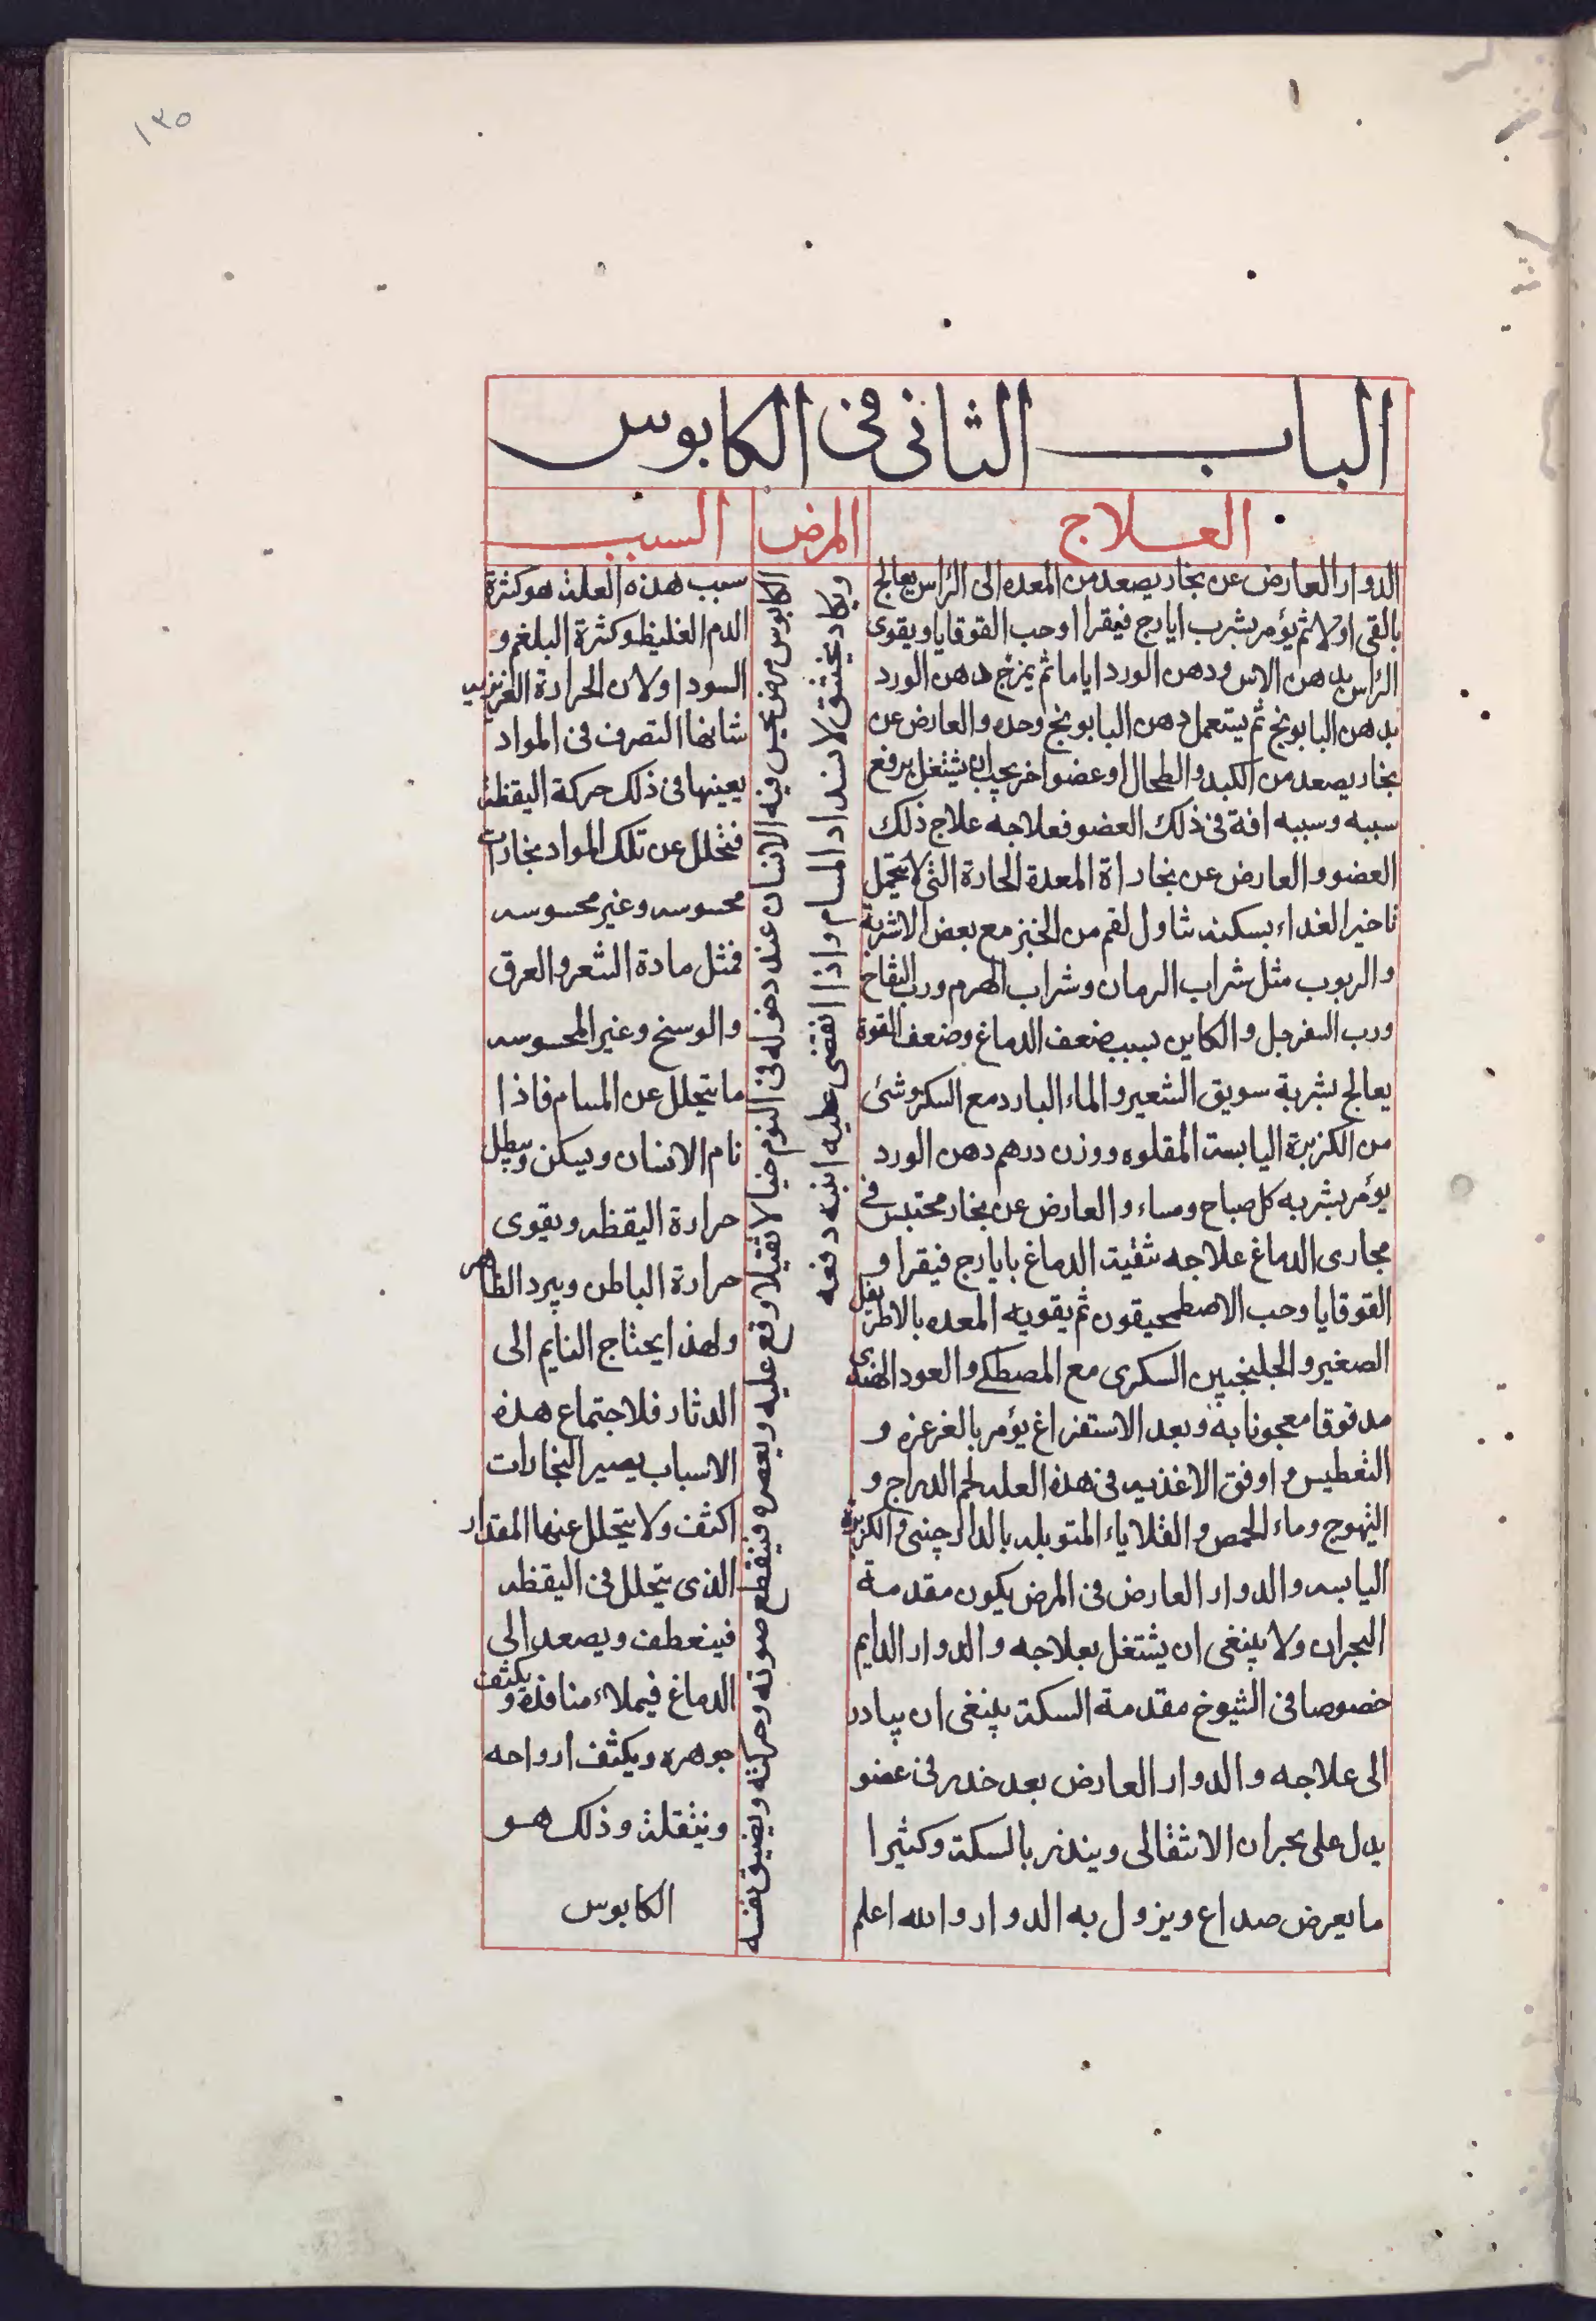 ١٣٥
الباب الثانى فى الكابوس
العلاج
المرض
السبب
الدوار العارض عن بخار يصعد من المعده الى الراس يعالج
بالقى اولا ثم يؤمر بشرب ايارج فيقرا اوحب القوقايا ويقوى
الراس بدهن الاس ودهن الورد اياما ثم يمزج دهن الورد
بدهن البابونج ثم يستعمل دهن البابونج وحده والعارض عن
بخار يصعد من الكبد والطحال او عضو اخر يجب ان يشتغل برفع
سببه وسببه افة فى ذلك العضو فعلاجه علاج ذلك
العضو والعارض عن بخاراة المعدة الحادة التى لا تحتمل
تاخير الغداء بسكنه تناول لقم من الخبز مع بعض الاشربة
والربوب مثل شراب الرمان وشراب الهرم ورب التفاح
ورب السفرجل والكاين بسبب ضعف الدماغ وضعف القوة
يعالج بشربة سويق الشعير والماء البارد مع السكر وشئ
من الكزبرة اليابسة المقلوه ووزن درهم دهن الورد
يؤمر بشربه كل صباح ومساء والعارض عن بخار محتبس فى
مجارى الدماغ علاجه تنقية الدماغ بايارج فيقرا و
القوقايا وحب الاصطمحيقون ثم يقويه المعده بالاطريفل
الصغير والجلنجبين السكرى مع المصطكى والعود الهندى
مدقوقا معجونا به وبعد الاستفراغ يؤمر بالغرغره و
التعطيس واوفق الاغذيه فى هذه العله لحم الدراج و
التهوج وماء الحمص والقلاياء المتوبله بالدارچنى والكزبرة
اليابسه والدوار العارض فى المرض يكون مقدمة
البحران ولا ينبغى ان يشتغل بعلاجه والدوار الدايم
خصوصا فى الشيوخ مقدمة السكتة ينبغى ان يبادر
الى علاجه والدوار العارض بعد خدر فى عضو
يدل على بحران الانتقالى وينذر بالسكتة وكثيرا
ما يعرض صداع ويزول به الدوار والله اعلم
الكابوس مرض يحس فيه الانسان عند دخوله فى النوم خيالا ثقيلا وقع عليه ويعصره فينقطع صوته وحركته ويضيق نفسه
ويكاد يختنق لانسداد المسام واذا انقضى عليه انتبه دفعه
سبب هذه العلة هو كثرة
الدم الغليظ وكثرة البلغم و
السودا ولان الحرارة الغريزيه
شانها التصرف فى المواد
يعينها فى ذلك حركة اليقظة
فتحلل عن تلك المواد بخارات
محسوسه وغير محسوسه
فمثل مادة الشعر والعرق
والوسخ وغير المحسوسه
ما يتحلل عن المسام فاذا
نام الانسان ويسكن وبطل
حرارة اليقظه ويقوى
حرارة الباطن ويبرد الظاهر
ولهذا يحتاج النايم الى
الدثار فلاجتماع هذه
الاسباب يصير البخارات
اكثف ولا يتحلل عنها المقدار
الذى يتحلل فى اليقظه
فينعطف ويصعد الى
الدماغ فيملاء منافذه ويكثف
جوهره ويكثف ارواحه
ويثقلة وذلك هو
الكابوس